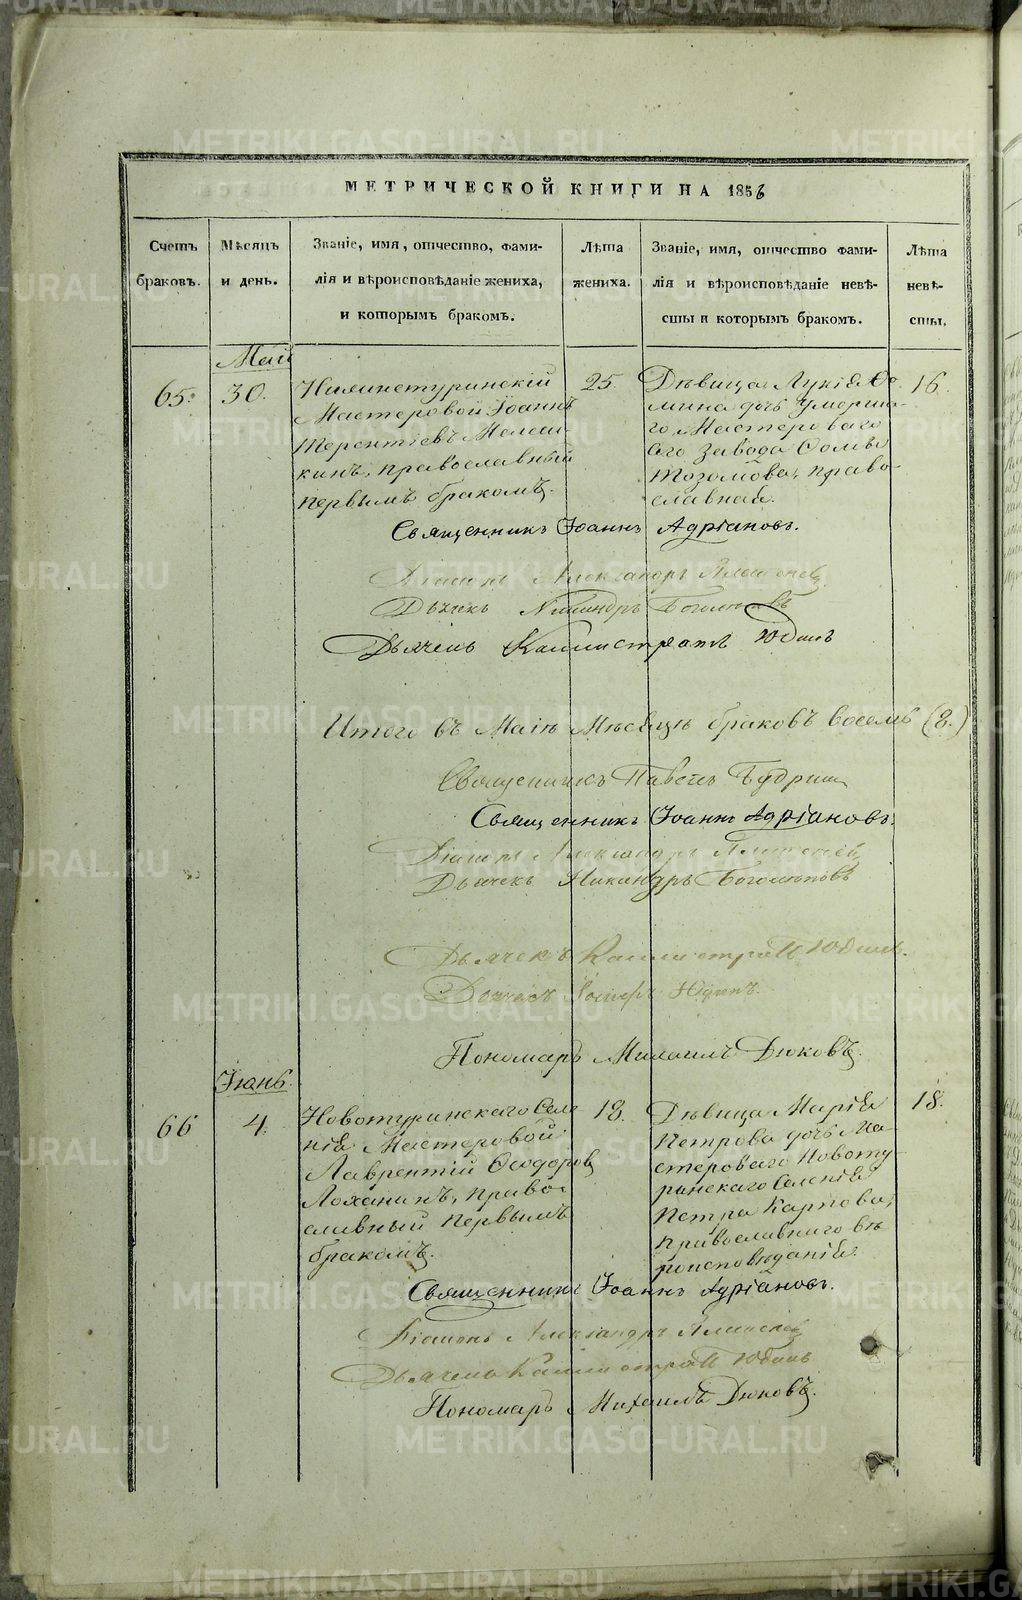 МЕТРИЧЕСКОЙ КНИГИ НА 1856
Счетъ браковъ.
Мѣсяцъ и день.
Званіе, имя, отчество, фами-
лія и вѣроисповѣданіе жениха,
и которымъ бракомъ.
Лѣта
жениха.
Званіе, имя, отчество фами-
лія и вѣроисповѣданіе невѣ-
сты и которымъ бракомъ.
Лѣта
невѣ-
сты.
Май
65.
30.
Нижнетуринскій
Мастеровой Іоаннъ
Терентіевъ
кинъ, православный
первымъ бракомъ.
25.
Дѣвица Лукія Ѳо-
мина дочь умерша-
го Мастероваго
сего завода Ѳомы
право-
славная.
16.
Священникъ Іоаннъ Адріановъ.
Діаконъ Александръ
Дьячекъ Никандръ Боголѣповъ
Дьячекъ Каллистратъ Юдинъ
Итого въ Маіѣ Мѣсяцѣ браковъ восемь (8.)
Священникъ Павелъ
Священникъ Іоаннъ Адріановъ.
Діаконъ Александръ
Дьячекъ Никандръ Боголѣповъ
Дьячекъ Каллистратъ Юдинъ.
Дьячекъ Юдинъ.
Пономарь Михаилъ Дюковъ.
Іюнь.
66
4.
Новотуринскаго Селе-
нія Мастеровой
Лаврентій Ѳеодоровъ
Лоханинъ, право-
славный первымъ
бракомъ.
18.
Дѣвица Марія
Петрова дочь Ма-
стероваго Новоту-
ринскаго Селенія
Петра Карпова,
православнаго вѣ-
роисповѣданія.
18.
Священникъ Іоаннъ Адріановъ.
Діаконъ Александръ
Дьячекъ Каллистратъ Юдинъ
Пономарь Михаилъ Дюковъ.
METRIKI.GASO-URAL.RU